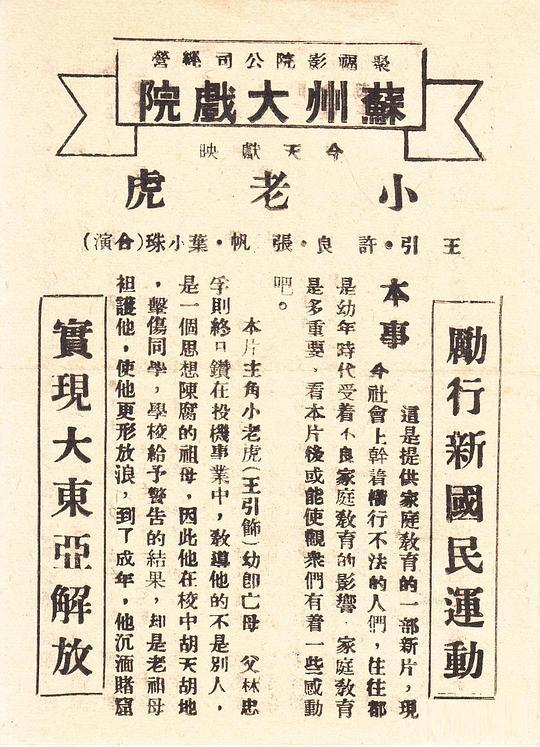 聚福影院公司經營
蘇州大戲院
今天獻映
小老虎
王引·許良·張帆·葉小珠(合演)
勵行新國民運動
本事
這是提供家庭敎育的一部新片，現
今社會上幹着橫行不法的人們，往往都
是幼年時代受着不良家庭敎育的影響 家庭敎育
是多重要，看本片後或能使觀衆們有着一些感動
吧。
本片主角小老虎(王引飾)幼卽亡母 父林忠
孚則終日鑽在投機事業中，敎導他的不是別人，
是一個思想陳腐的祖母，因此他在校中胡天胡地
，擊傷同學，學校給予警告的結果，却是老祖母
袒護他，使他更形放浪，到了成年，他沉湎賭窟
實現大東亞解放